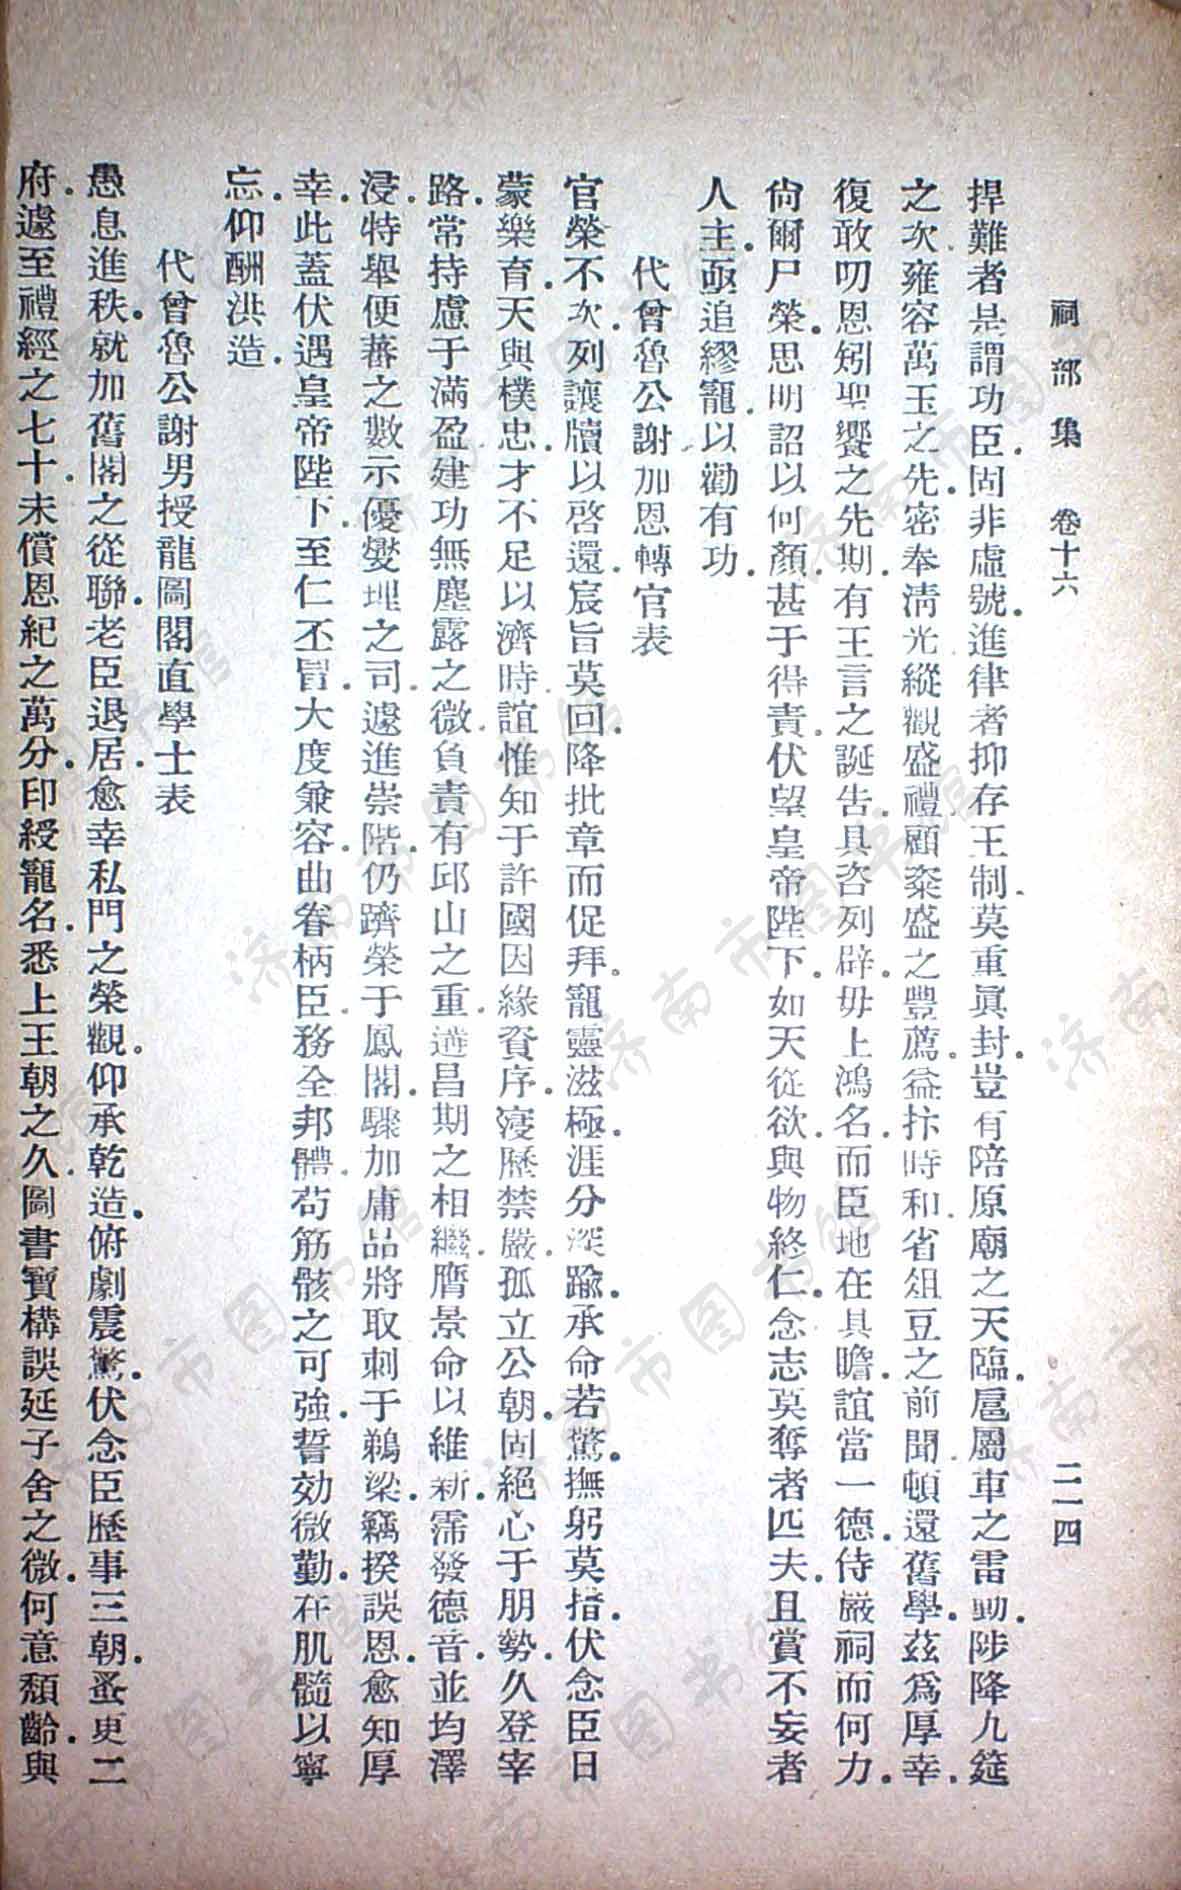 祠部集　卷十六　二一四
捍難者是謂功臣.固非虛號.進律者抑存王制.莫重眞封.豈有陪原廟之天臨.扈屬車之雷動.陟降九筵
之次.雍容萬玉之先.密奉淸光.縱觀盛禮.顧粢盛之豐薦.益抃時和.省俎豆之前聞.頓還舊學.茲爲厚幸.
復敢叨恩.矧聖饗之先期.有王言之誕告.具咨列辟.毋上鴻名.而臣地在具瞻.誼當一德.侍嚴祠而何力.
尙爾尸榮.思明詔以何顏.甚于得責.伏望皇帝陛下.如天從欲.與物終仁.念志莫奪者匹夫.且賞不妄者
人主.亟追繆寵.以勸有功.
代曾魯公謝加恩轉官表
官榮不次.列讓牘以啓還.宸旨莫回.降批章而促拜.寵靈滋極.涯分深踰.承命若驚.撫躬莫措.伏念臣日
蒙樂育.天與樸忠.才不足以濟時.誼惟知于許國.因緣資序.寖歷禁嚴.孤立公朝.固絕心于朋勢.久登宰
路.常持慮于滿盈.建功無塵露之微.負責有邱山之重.遘昌期之相繼.膺景命以維新.霈發德音.並均澤
浸.特舉便蕃之數.示優燮理之司.遽進崇階.仍躋榮于鳳閣.驟加庸品.將取刺于鵜梁.竊揆誤恩.愈知厚
幸.此蓋伏遇皇帝陛下.至仁丕冒.大度兼容.曲眷柄臣.務全邦體.苟筋骸之可強.誓効微勤.在肌髓以寧
忘.仰酬洪造.
代曾魯公謝男授龍圖閣直學士表
愚息進秩.就加舊閣之從聯.老臣退居.愈幸私門之榮觀.仰承乾造.俯劇震驚.伏念臣歷事三朝.蚤更二
府.遽至禮經之七十.未償恩紀之萬分.印綬寵名.悉上王朝之久.圖書寶構.誤延子舍之微.何意頹齡.與